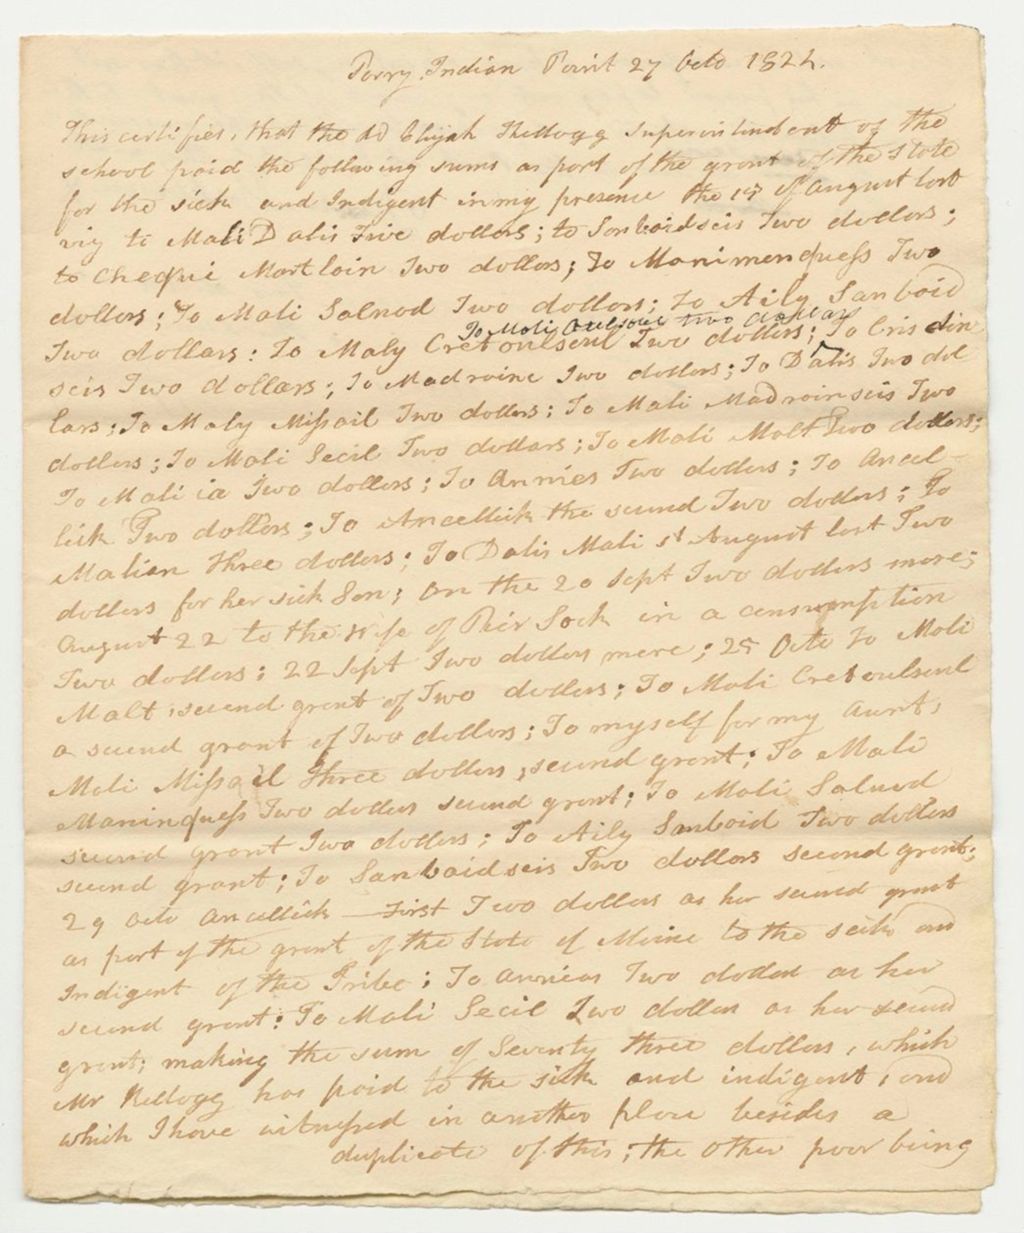 Perry Indian Point 27 Octo 1824.
This certifies, that the Rd Elijah Kellogg Superintendent of the
school paid the following sums as part of the grant of the State
for the sick and Indigent in my presence the 1st of August last
viz to Mali Dalis Five dollars; to Sanbaidseis Two dollars;
to Chequi Martloin Two dollars; To Manimenquess Two
dollars; To Mali Salnod Two dollars; To Aily Sanboid
To Mali two dollars
Two dollars: To Maly Cretoulseul Two dollars; To Cris din
seis Two dollars; To Madroine Two dollars; To Dalis Two dol
lars; To Maly Missail Two dollars; To Mali Madroinseis Two
dollers; To Mali Secil Two dollars; To Mali Malt Two dollars;
To Mali ia Two dollers; To Annies Two dollers; To Ancel-
lick Two dollers; To Ancellick the second Two dollers; To
Malian Three dollers; To Dalis Mali 1st August last Two
dollers for her sick Son; on the 20 Sept Two dollers more;
August 22 to the wife of Peir Sock in a consumption
Two dollers; 22 Sept Two dollers more; 25 Octo To Mali
Malt, second grant of Two dollers; To Mali Cretoulseul
a second grant of Two dollers; To myself for my Aunt,
Mali Missail Three dollers, second grant; To Mali
Maninquess Two dollers second grant; To Mali Salnod
second grant Two dollers; To Aily Sanboid Two dollers
second grant; To Sanbaidseis Two dollers second grant;
29 Octo Ancellick First Two dollers as her second grant
as part of the grant of the State of Maine to the sick and
Indigent of the Tribe; To Annias Two dollers as her
second grant; To Mali Secil Two dollers as her second
grant; making the sum of Seventy three dollers, which
Mr Kellogg has paid to the sick and indigent, and
which I have witnessed in another place besides a
duplicate of this; the other poor being